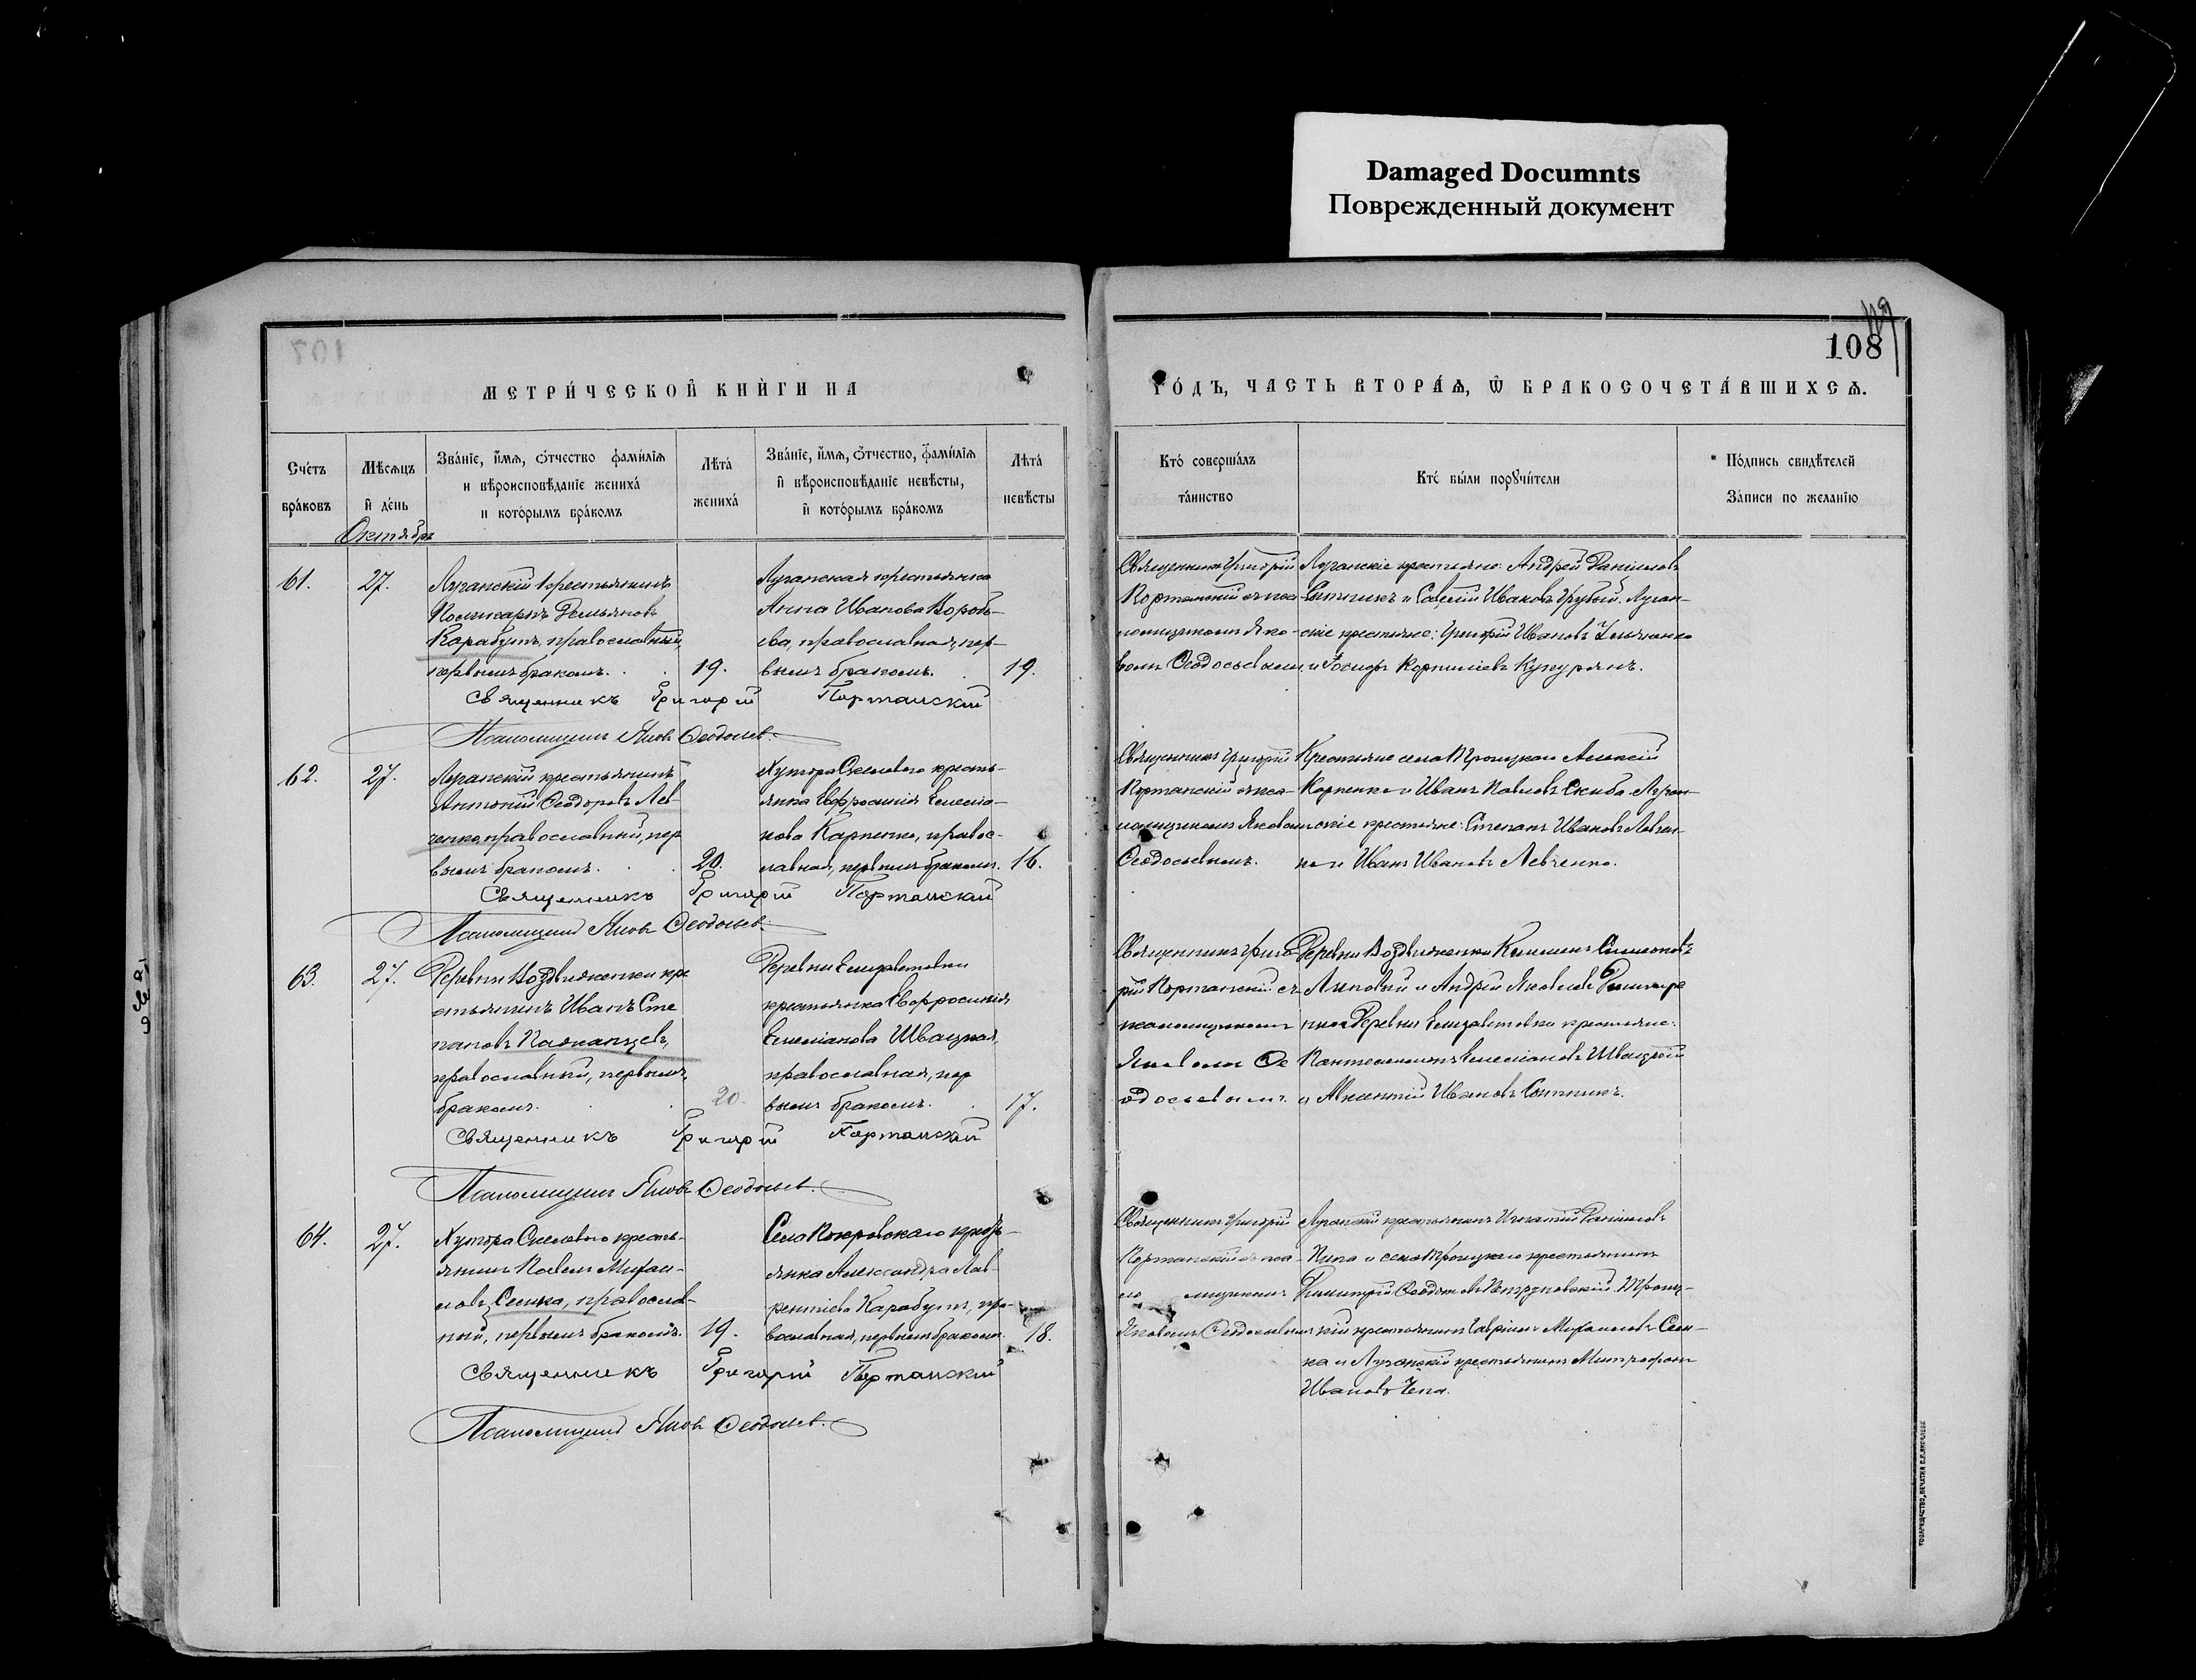 Damaged Documnts
Поврежденный документ
108
107
МЕТРИ́ЧЕСКОЙ КНИ́ГИ НА
ГО́ДЪ, ЧАСТЬ ВТОРА́Ѧ, Ѿ БРАКОСОЧЕТА́ВШИХСѦ.
Сче́тъ
бра́ковъ
Мѣ́сѧцъ
и҆ де́нь
Зва́нїе, и҆́мѧ, ѻ҆́тчество фами́лїѧ
и вѣроисповѣ́данїе жениха́
и кото́рымъ бра́комъ
Лѣта́
жениха́
Зва́нїе, и҆́мѧ, ѻ҆́тчество, фами́лїѧ
и҆ вѣроисповѣ́данїе невѣ́сты,
и҆ кото́рымъ бра́комъ
Лѣта́
невѣ́сты
Кто́ соверша́лъ
та́инство
Кто́ бы́ли порꙋчи́тели
По́дпись свидѣ́телей
За́писи по жела́нїю
Октябрь
61.
27.
Луганскій крестьянинъ
Поликарпъ Демьяновъ
Карабутъ, православный,
первымъ бракомъ.
19.
Луганская крестьянка
Анна Иванова Воробь-
ева, православная, пер-
вымъ бракомъ.
19.
Священникъ Григорій
Портанскій с пса-
ломщикомъ Яко-
вомъ Ѳеодосьевымъ
Луганскіе крестьяне: Андрей Даніиловъ
Сытникъ и Савелій Ивановъ Грубый. Луган-
скіе крестьяне: Григорій Ивановъ
и Іосифъ Корниліевъ Кукурянъ.
Священникъ Григорій Портанскій
Псаломщикъ Яковъ Ѳеодосьев.
62.
27.
Луганскій крестьянинъ
Антоній Ѳеодоровъ Лев-
ченко, православный, пер
вымъ бракомъ.
20.
Хутора Скелеваго кресть-
янка Евфросинія Емелiа-
нова Карпенко, правос-
лавная, первымъ бракомъ.
16.
Священникъ Григорій
Портанскій с пса-
ломщикомъ Яковомъ
Ѳеодосьевымъ.
Крестьяне села Троицкаго Алексій
Карпенко и Иванъ Павловъ Скиба. Луган-
скіе крестьяне: Степанъ Ивановъ Левчен-
ко и Иванъ Ивановъ Левченко.
Священникъ Григорій Портанскій
Псаломщикъ Яковъ Ѳеодосьев.
63.
27.
Деревни Воздвиженки кре
стьянинъ Иванъ Сте
пановъ
православный, первымъ
бракомъ.
20.
Деревни Елизаветовки
крестьянка Евфросинія
Емеліанова Швацкая,
православная, пер
вымъ бракомъ.
17.
Священникъ Григо
рій Портанскій съ
псаломщикомъ
Яковомъ Ѳе
одосьевымъ.
Деревни Воздвиженки Климент Симеоновъ
Липовый и Андрій Яковлевъ
Деревни Елизаветовки крестьяне:
Пантелеимонъ Емеліановъ Швацкій
и Авксентій Ивановъ Сытникъ.
Священникъ Григорій Портанскій
Псаломщикъ Яковъ Ѳеодосьев.
64.
27.
Хутора Скелеваго кресть-
янинъ Павелъ Михаи-
ловъ Сенка, православ-
ный, первымъ бракомъ.
19.
Села Покровскаго кресть-
янка Александра Лав-
рентіева Карабутъ, пра-
вославная, первымъ бракомъ.
18.
Священникъ Григорій
Портанскій съ пса-
ло мщикомъ
Яковомъ Ѳеодосьевымъ
Луганскій крестьянинъ Игнатій Даніиловъ
Пипа и села Троицкаго крестьянинъ
Димитрій Ѳеодотовъ Петруновскій. Троиц-
кій крестьянинъ Гавріилъ Михаиловъ Сен-
ка и Луганскій крестьянинъ Митрофанъ
Ивановъ Чепа.
Священникъ Григорій Портанскій
Псаломщикъ Яковъ Ѳеодосьев.